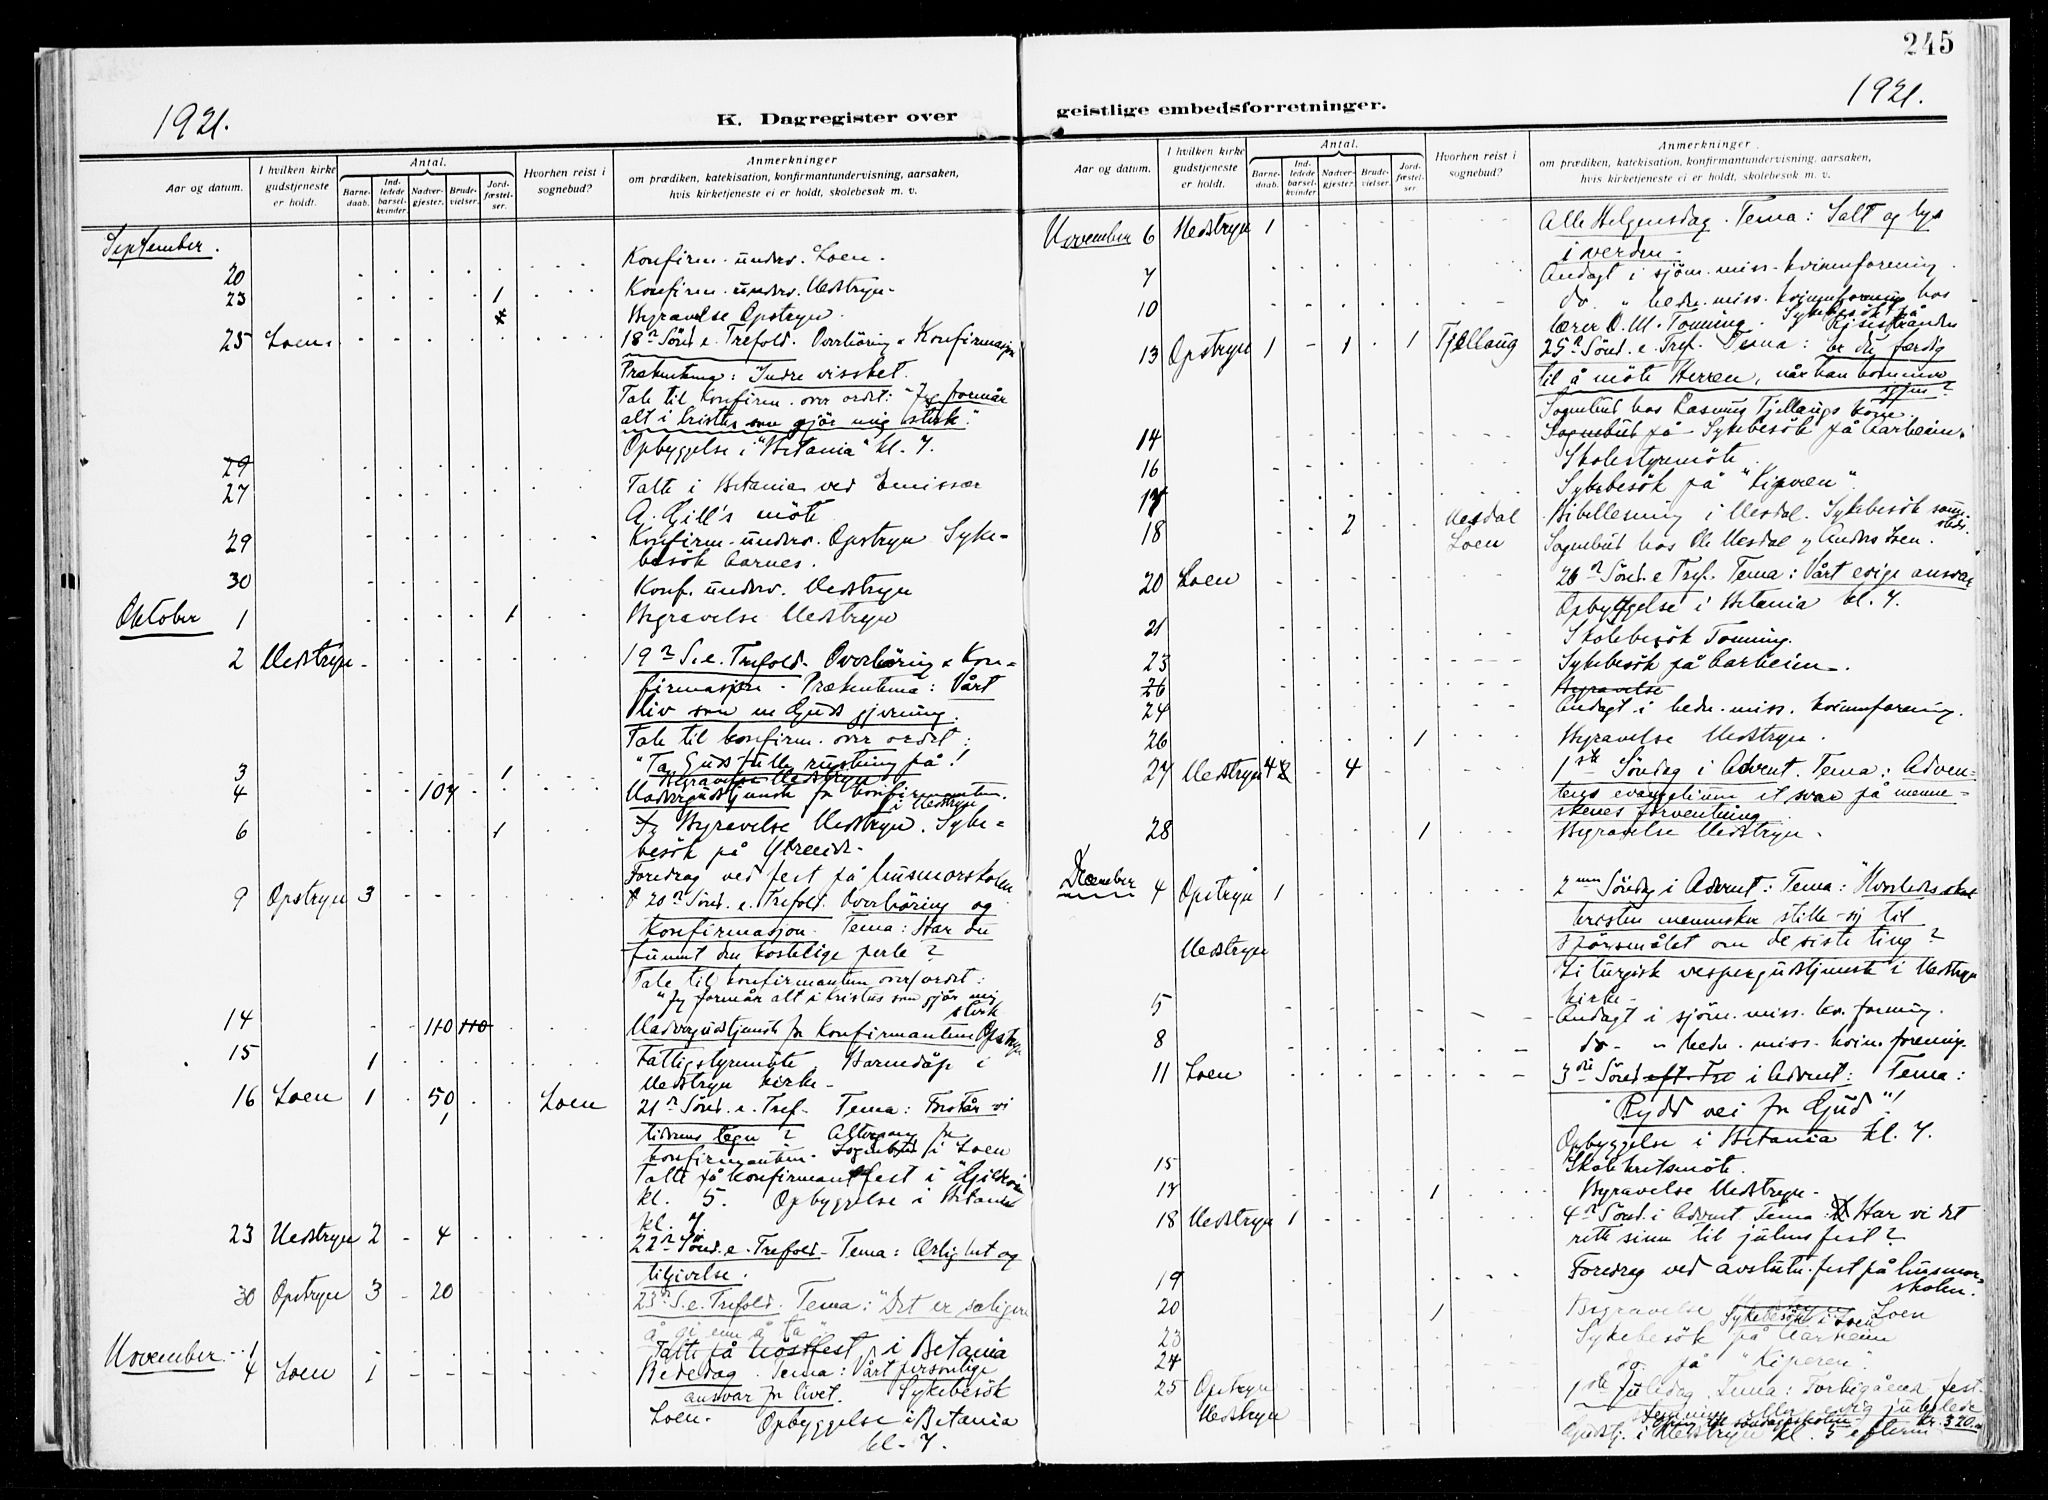 245
1921.
K. Dagregister over
Aar og datum.
I hvilken kirke gudstjeneste er holdt.
Antal.
Barne-daab.
Ind-ledede barsel-kvinder.
Nadver-gjester.
Brude-vielser.
Jord-fæstel-ser.
Hvorhen reist i sognebud?
Anmerkninger
om prædiken, katekisation, konfirmantundervisning, aarsaken,
hvis kirketjeneste ei er holdt, skolebesøk m. v.
September.
20 Konfirm. underv. Loen.
23 1 Konfirm. underv. Nedstryn.
Begravelse Opstryn.
25 Loen 18n Sönd. e. Trefold. Overhöring & Konfirmasjon
Prækentema: Indre visshet.
Tale til Konfirm. over ordet: "Jeg formår
alt i Kristus som gjör mig sterk."
Opbyggelse i "Betania" kl. 7.
29
27 Talte i Betania ved Emissær
G. Gill's möte
29 Konfirm. underv. Opstryn Syke-
besök barnes.
30 Konf. underv. Nedstryn
Oktober 1 1 Begravelse Nedstryn
2 Nedstryn 19n S. e. Trefold. Overhöring & Kon-
firmasjon. Prækentema: Vårt
liv som en Guds gjerning.
Tale til konfirm. over ordet:
"Ta Guds fulle rustning på!
3 1 Begravelse Nedstryn
4 107 Nadvergudstjeneste for konfirmanten.
i Nedstryn
6 1 Begravelse Nedstryn. Syke-
besök på
Foredrag ved fest på husmorskolen
9 Opstryn 3 20n Sönd. e. Trefold. Overhöring og
Konfirmasjon. Tema: Har du
funnet den kostelige perle?
Tale til konfirmanten over ordet:
"Jeg formår alt i Kristus som gjör mig
sterk
14 110 110 Nadvergudstjeneste for Konfirmanten Opstryn
15 1 Fattigstyremöte. Barnedåp i
Nedstryn kirke.
16 Loen 1 50 Loen 21n Sönd. e. Tref. Tema: Forstår vi
1 tidens tegn? Altergang for
konfirmanten. Sognebud i Loen
Talte på Konfirmantfest i
kl. 5. Opbyggelse i Betania
kl. 7.
23 Nedstryn 2 4 22n Sönd. e. Trefold. Tema: Ærlighet og
tilgivelse.
30 Opstryn 3 20 23n S. e. Trefold. Tema: "Det er saligere
å gi enn å ta"
November 1 Talte på höstfest i Betania
4 Loen 1 Bededag. Tema: Vårt personlige
ansvar for livet. Sykebesök
Loen. Opbyggelse i Betania
kl. 7.
geistlige embedsforretninger.
1921.
Aar og datum.
I hvilken kirke gudstjeneste er holdt.
Antal.
Barne-daab.
Ind-ledede barsel-kvinder.
Nadver-gjester.
Brude-vielser.
Jord-fæstel-ser.
Hvorhen reist i sognebud?
Anmerkninger
om prædiken, katekisation, konfirmantundervisning, aarsaken,
hvis kirketjeneste ei er holdt, skolebesøk m. v.
November 6 Nedstryn 1 Alle Helgensdag. Tema: Salt og lys
i verden.
7 Andagt i sjöm. miss. kvinneforening.
10 do. " hedn. miss. kvinneforening hos
lærer O. M. Tonning. Sykebesök på
13 Opstryn 1 1 1 Tjellaug 25n Sönd. e. Tref. Tema: Er du færdig
til å möte Herren, når han kommer
igjen?
Sognebud hos Rasmus Tjellaugs kone.
14 Sognebud på Sykebesök på Aarheim.
16 Skolestyremöte.
17 Sykebesök på "Kiperen".
18 2 Nesdal Bibellesning i Nesdal. Sykebesök samme-
steds.
Loen Sognebud hos Ole Nesdal og Anders Loen.
20 Loen 26n Sönd. e. Tref. Tema: Vårt evige ansvar
Opbyggelse i Betania kl. 7.
21 Skolebesök Tonning.
23 Sykebesök på Aarheim.
26 Begravelse
24 Andagt i hedn. miss. kvinneforening.
26 1 Begravelse Nedstryn.
27 Nedstryn 4 4 1ste Söndag i Advent. Tema: Adven-
tens evangelium et svar på menne-
skenes forventning
28 1 Begravelse Nedstryn.
December 4 Opstryn 1 2nen Söndag i Advent: Tema: Hvorledes skal
kristne mennesker stille sig til
spörsmålet om de siste ting?
Nedstryn Liturgisk vespergudstjeneste i Nedstryn
kirke.
5 Andagt i sjöm. miss. kv. forening.
8 do. " hedn. miss. kvin. forening.
11 Loen 3die Sönd. eft. Tre i Advent: Tema:
"Rydd vei for Gud"!
Opbyggelse i Betania kl. 7.
15 Skolekretsmöte.
17 1 Begravelse Nedstryn.
18 Nedstryn 1 4n Sönd. i Advent. Tema: Har vi det
rette sinn til julens fest?
19 Foredrag ved avslutn. fest på husmor-
skolen.
20 1 Begravelse Loen
Sykebesök i Loen
23 Sykebesök på Aarheim
24 do. på "Kiperen".
25 Opstryn 1ste Juledag. Tema: Forbigående fest-
stemning eller evig juleglede
Nedstryn Ofring til söndagsskolen Kr. 320.
Gudstj. i Nedstryn kl. 5 efterm